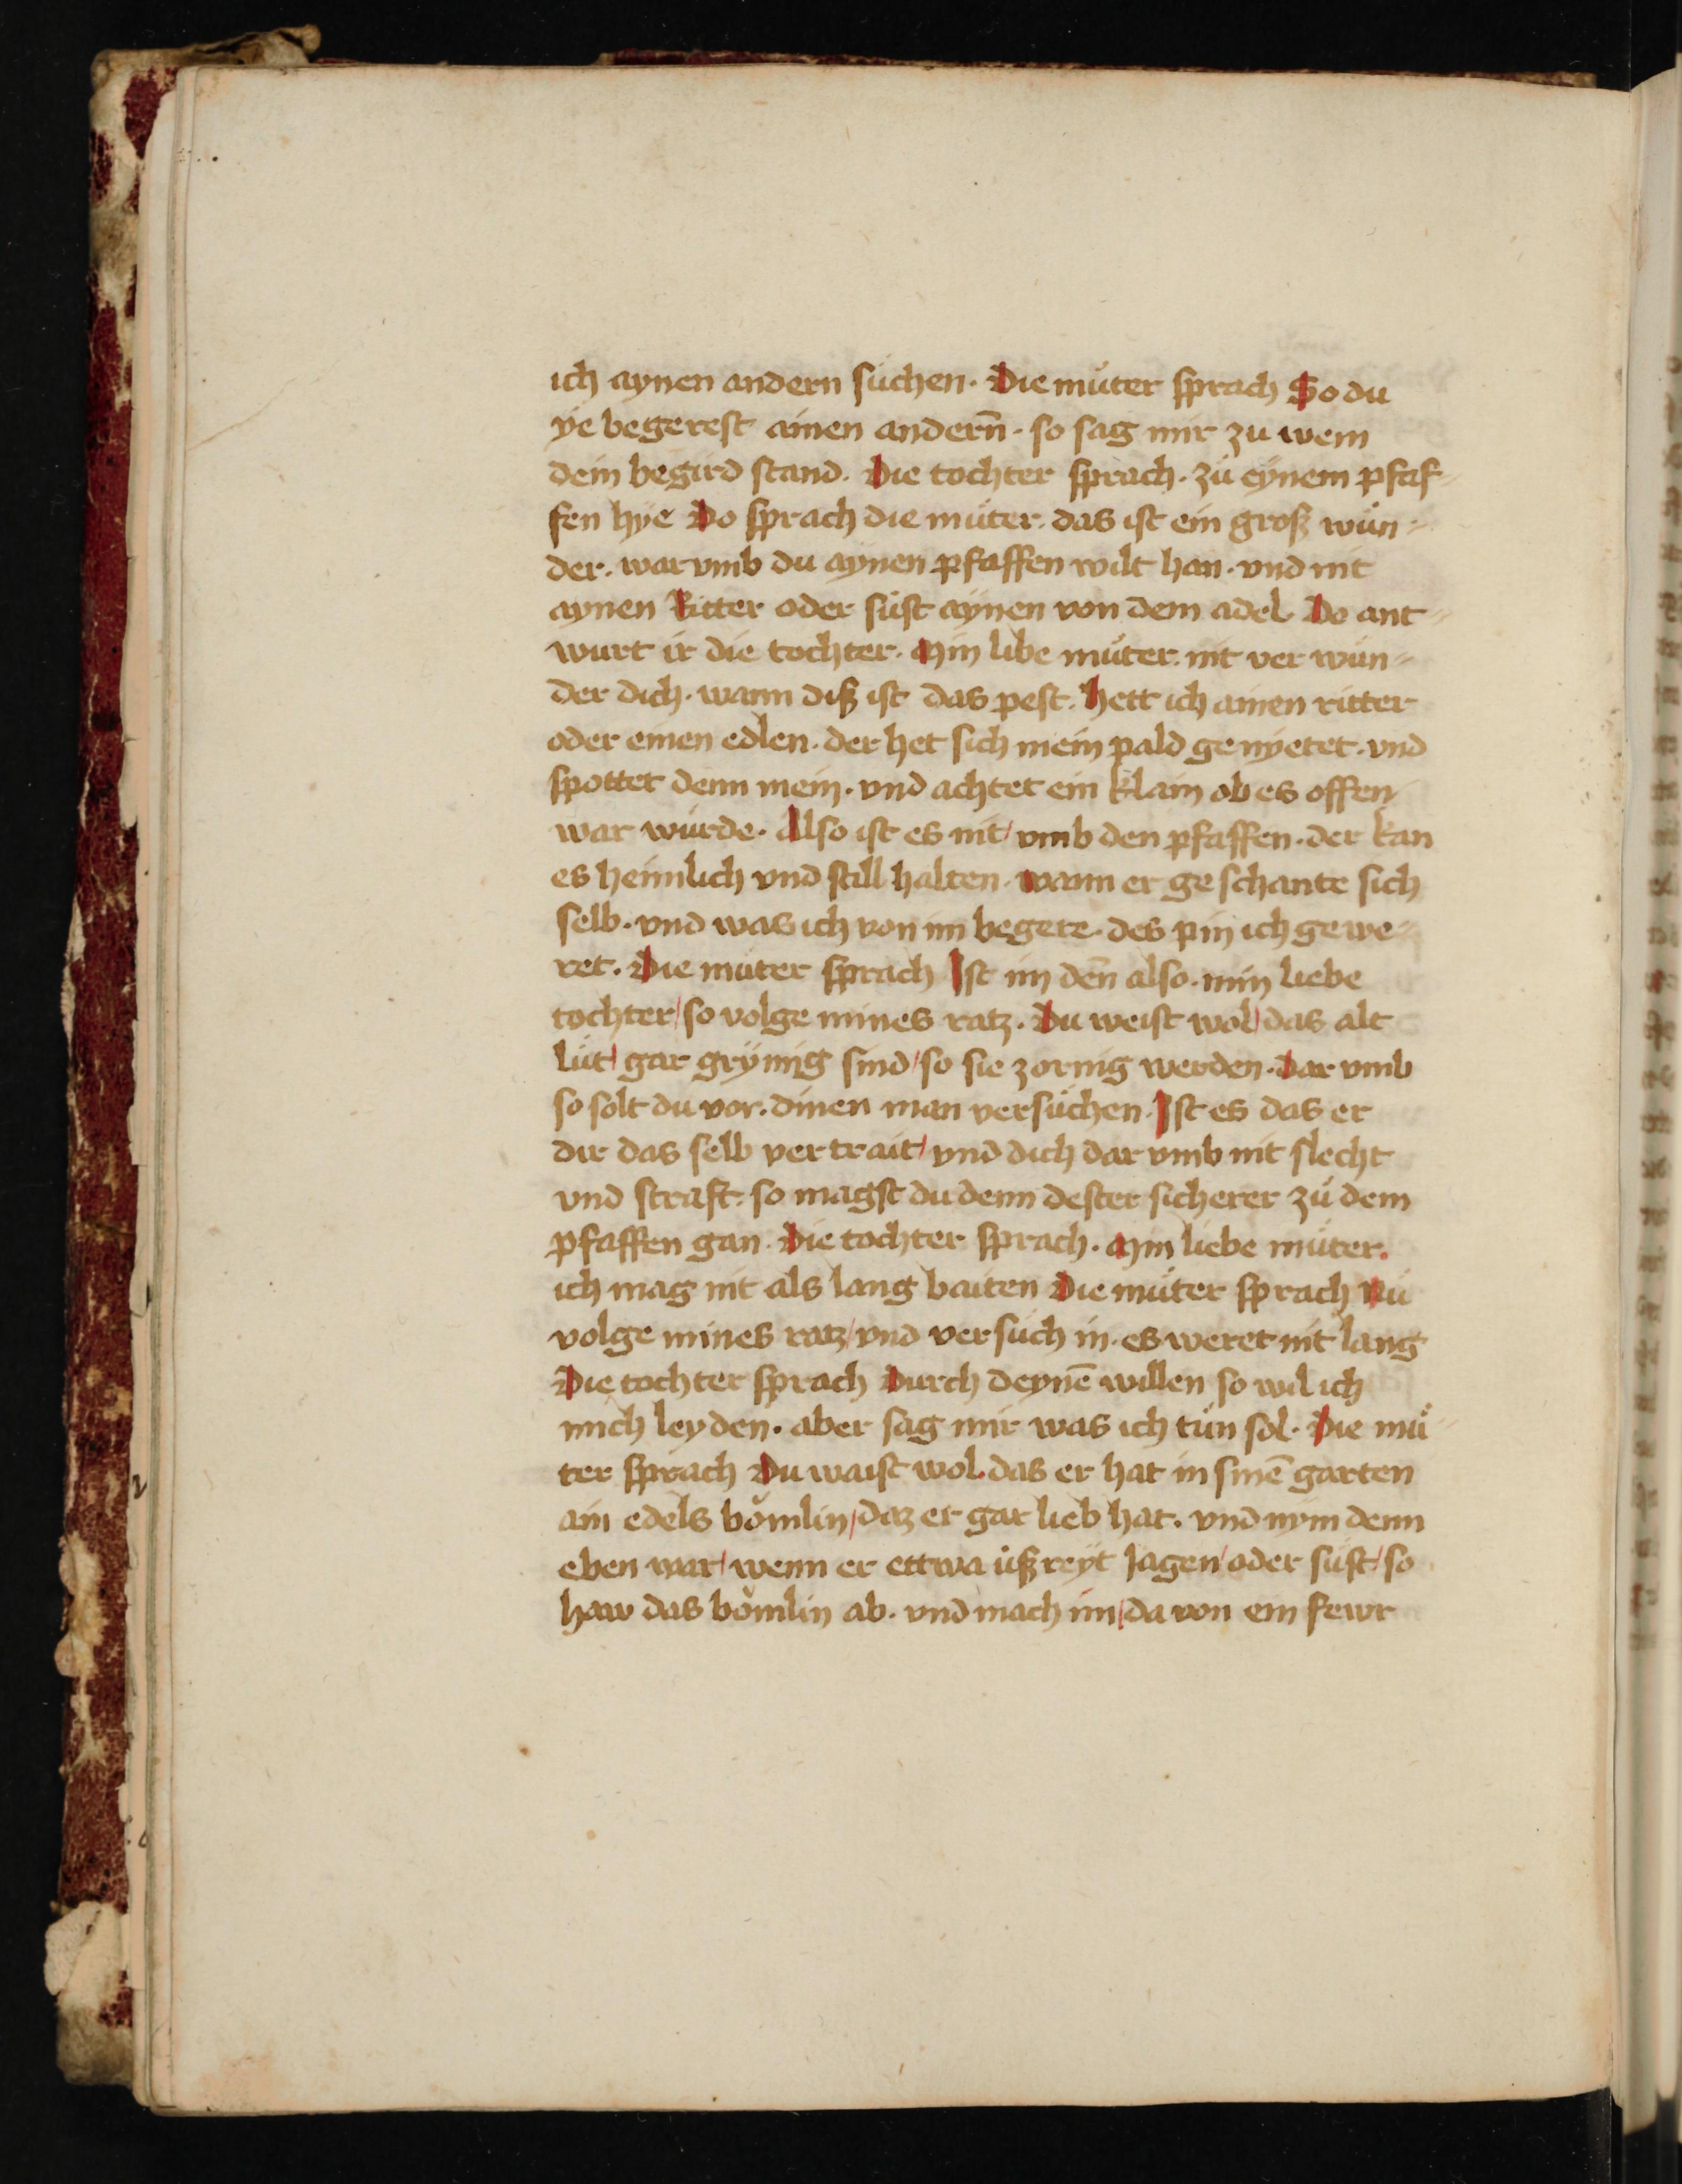 ich aynen andern sůchen · Die můter sprach So du
ye begerest ainen andern̄ · so sag mir zu wem
dein begird stand · Die tochter sprach · zů eynem pfaf-
fen hye Do sprach die můter · das ist ein groß wun-
der · war vmb du aynen pfaffen wilt han · vnd nit
aynen Ritter oder sůst aynen von dem adel Do ant-
wurt ir die tochter · Min libe můter · nit ver wun-
der dich · wann diß ist das pest · hett ich ainen ritter
oder einen edlen · der het sich mein pald ge nyetet · vnd
spottet denn mein · vnd achtet ein klain ob es offen
war wurde · Also ist es nit / vmb den pfaffen · der kan
es heimlich vnd still halten · wann er ge schante sich
selb · vnd was ich von im begere · des pin ich gewe-
ret · Die můter sprach Ist im den̄ also · min liebe
tochter / so volge mines ratz · Du weist wol / das alt
lüt / gar grymig sind / so sie zornig werden · Dar vmb
so solt du vor · dinen man versůchen · Ist es das er
dir das selb ver trait / vnd dich dar vmb nit slecht
vnd straft · so magst du denn dester sicherer zů dem
pfaffen gan · Die tochter sprach · Min liebe můter ·
ich mag nit als lang baiten Die můter sprach Nu
volge mines ratz / vnd ver sůch in · es weret nit lang
Die tochter sprach Durch deynē willen so wil ich
mich leyden · aber sag mir was ich tůn sol · Die mů-
ter sprach Du waist wol · das er hat in sinē garten
ain edels bomlin / daz er gar lieb hat · vnd nym denn
eben war / wenn er ettwa uß reyt Jagen / oder sust / so
haw das bomlin ab · vnd mach im / da von ein fewr